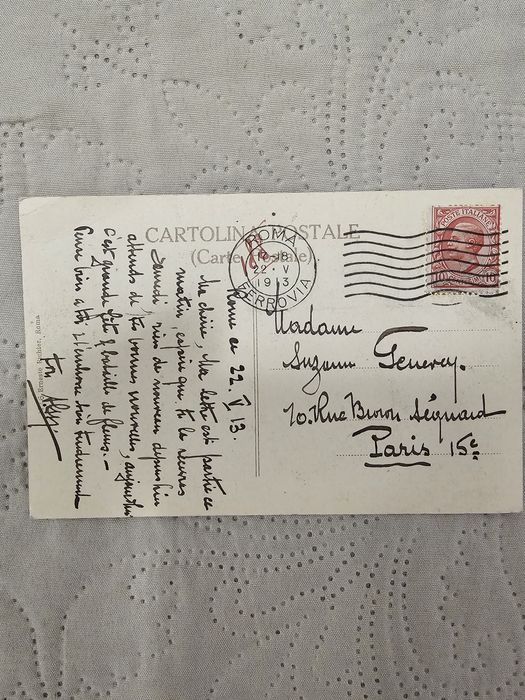 CARTOLINA POSTALE
(Carte Postale)
ROMA
22 · V
1913
FERROVIA
POSTE ITALIANE
10
Rome ce 22. V 13.
Ma chérie, Ma lettre est partie ce
matin, espère que tu la recevras
samedi, rien de nouveau depuis hier
attends de tes bonnes nouvelles, aujourd'hui
c'est grande fête & bataille de fleurs. —
Pense bien à toi & t'embrasse bien tendrement
Ton
Madame
Suzanne
10. Rue
Paris 15e
Roma